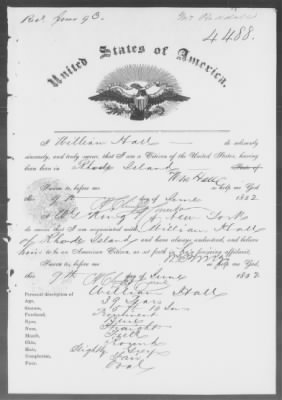 4488.
United States of America.
I William Hall do solemnly
sincerely, and truly swear, that I am a Citizen of the United States, having
been born in Rhode Island State of
Wm Hall
Sworn to, before me so help me God
this 9th day of June 1852
I King of New York
do swear that I am acquainted with William Hall
of Rhode Island and have always understood, and believe
him to be an American Citizen, as set forth in his foregoing Affidavit.
Sworn to, before me so help me God
this 9th day of June 1852
Personal description of William Hall
Age, 39 Years
Stature, 5 ft 10 In
Forehead, Prominent
Eyes, Blue
Nose, Straight
Mouth,
Chin, Round
Hair, Slightly Grey
Complexion, Fair
Face, Oval